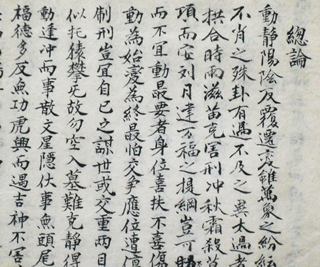 總論
動靜陽陰反覆遷变雖萬象之紛紜
不肖之殊卦有過不及之異太過者
拱合時雨滋苗克害刑冲秋霜殺草
項而安刘月建万福之提綱豈可助
而不宜動最要者身位喜扶不喜傷
動為始变為終最怕交爭應位遭傷
制刑豈宜自己之謀世或交重兩目
似托猿攀故勿空入墓難克靜得
動逢冲而事散文星隱伏事魚頭尾
福德多反魚功虎興而遇吉神不害